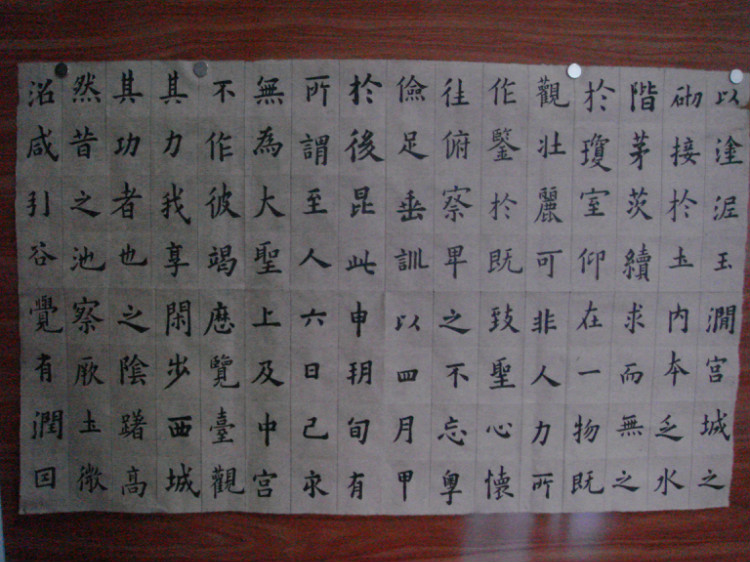 以塗泥玉澗宮城之
砌接於土内本乏水
階茅茨續求而無之
於瓊室仰在一物既
觀壯麗可非人力所
作鑒於既致聖心懷
往俯察卑之不忘粤
儉足垂訓以四月甲
於後昆此申朔旬有
所謂至人六日己亥
無為大聖上及中宮
不作彼竭歷覽臺觀
其力我享閑步西城
其功者也之陰躊高
然昔之池察厥土微
沼咸引谷覺有潤因